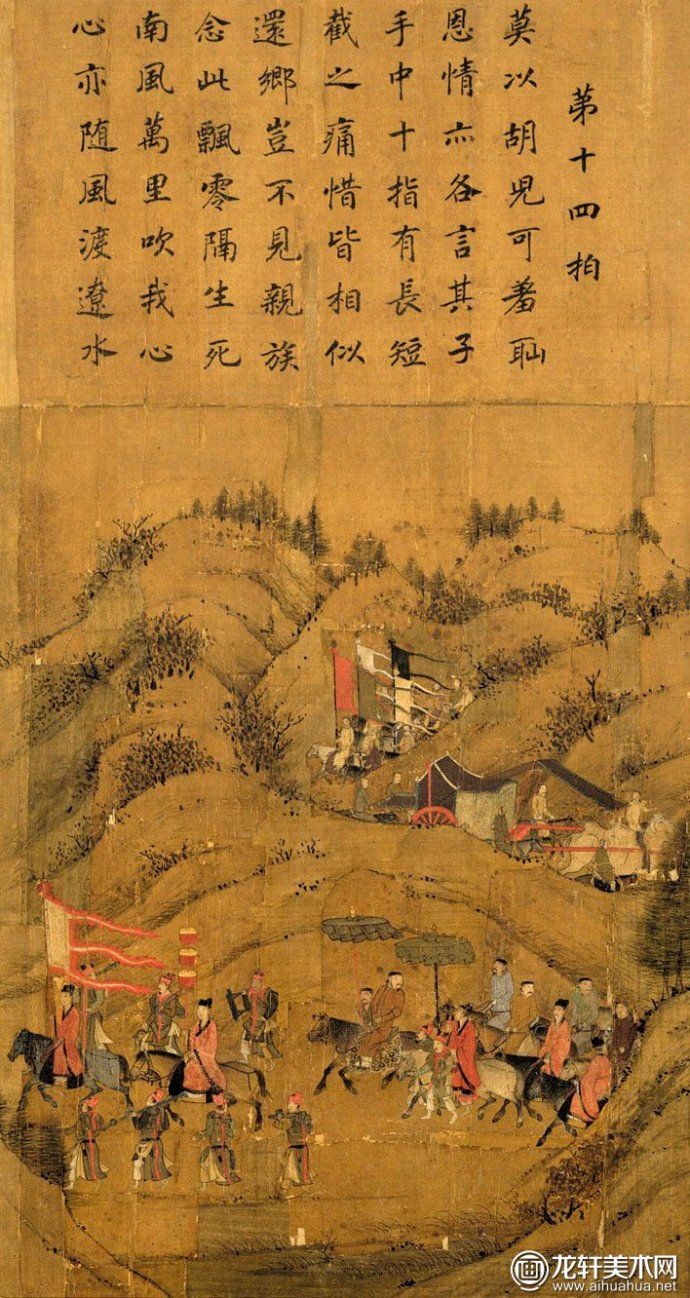 第十四拍
莫以胡兒可羞恥
恩情亦各言其子
手中十指有長短
截之痛惜皆相似
還鄉豈不見親族
念此飄零隔生死
南風萬里吹我心
心亦随風渡遼水
画 龙轩美术网
www.aihuahua.net